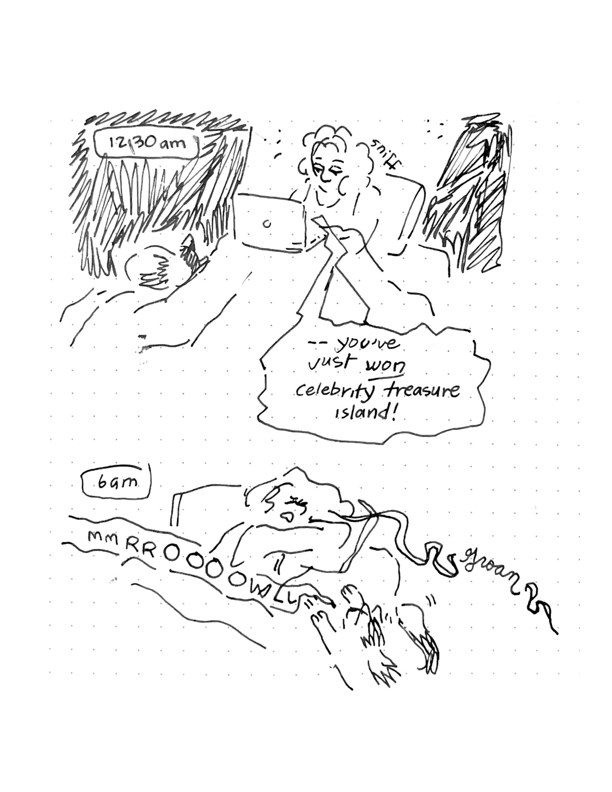 12:30 am
sniff
-- you've
just won
celebrity treasure
island!
6am
MMRROOOOWLL
groan